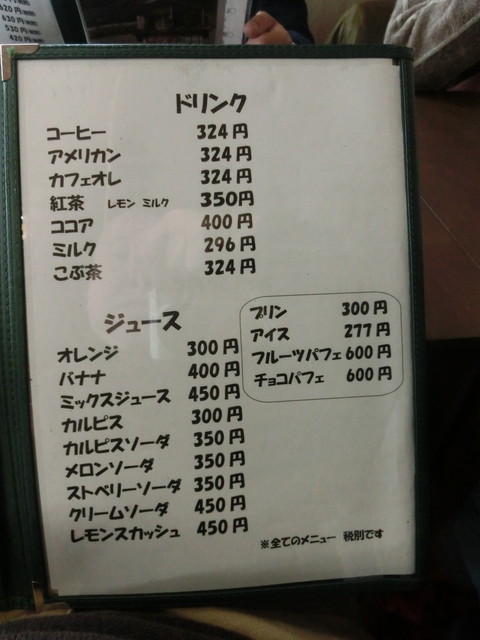 620円
630円
530円
420円
ドリンク
コーヒー 324円
アメリカン 324円
カフェオレ 324円
紅茶 レモン ミルク 350円
ココア 400円
ミルク 296円
こぶ茶 324円
ジュース
オレンジ 300円
バナナ 400円
ミックスジュース 450円
カルピス 300円
カルピスソーダ 350円
メロンソーダ 350円
ストベリーソーダ 350円
クリームソーダ 450円
レモンスカッシュ 450円
プリン 300円
アイス 277円
フルーツパフェ 600円
チョコパフェ 600円
※全てのメニュー 税別です